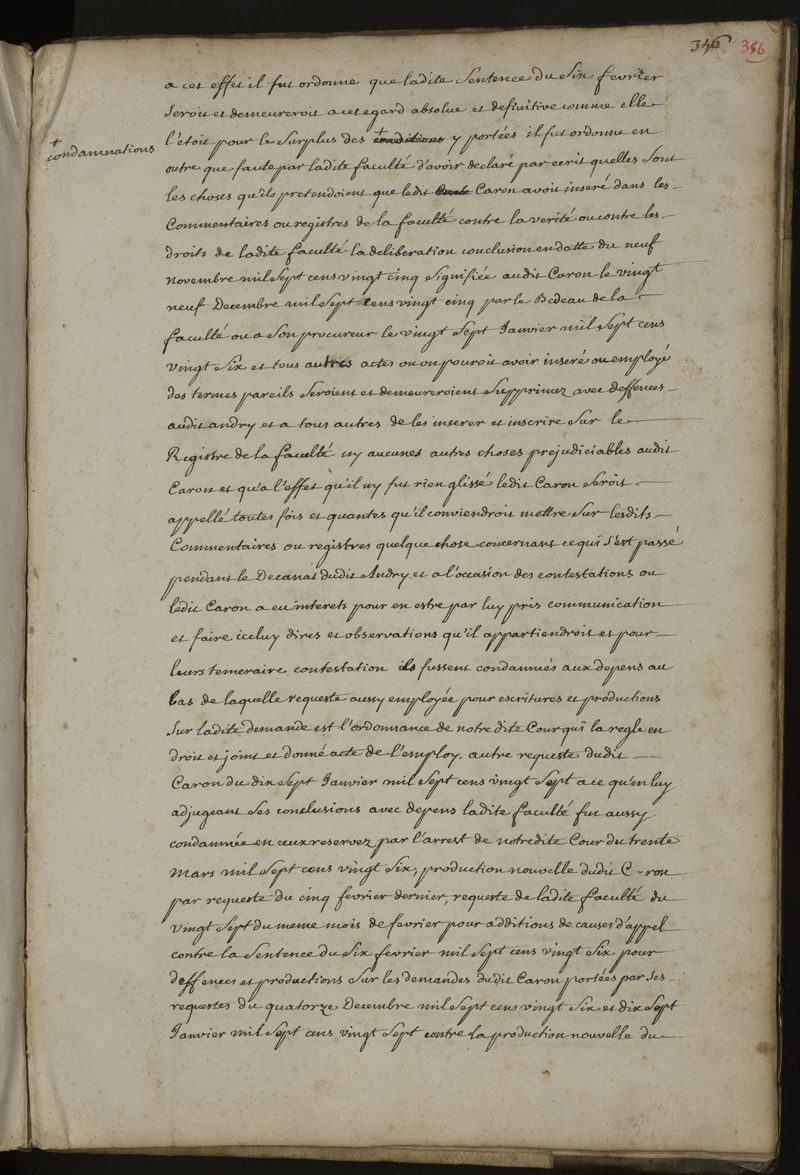 346 356
a cet effet il fut ordonne que ladite Sentence du Six fevrier
Seroit et demeureroit a cet egard absolue et definitive comme elle
l'etoit pour le Surplus des + conditions y portées il fut ordonne en
+ condamnations
outre que faute par ladite faculté d'avoir declaré par ecrit quelles Sont
les choses qu'ils pretendoient que ledit Caron avoit inseré dans les
Commentaires ou registres de la faculté contre la verité ou contre les
droits de ladite faculté la deliberation conclusion en datte du neuf
novembre mil Sept cens vingt cinq Signifiée audit Caron le vingt
neuf Decembre mil Sept cens vingt cinq par le Bedeau de la
faculté ou a Son procureur le vingt Sept Janvier mil Sept cens
vingt Six et tous autres actes ou on pouroit avoir inseré ou employé
des termes pareils Seroient et demeureroient Supprimez avec deffences
audit andry et a tous autres de les inserer et inscrire Sur le
Registre de la faculté ny aucunes autres choses prejudiciables audit
Caron et qu'a l'effet qu'il ny fut rien glissé ledit Caron Seroit
appellé toutes fois et quantes qu'il conviendroit mettre Sur lesdits
Commentaires ou registres quelque chose concernant ce qui S'est passé
pendant le Decanat dudit Andry et a l'occasion des contestations ou
ledit Caron a eu interets pour en estre par luy pris communication
et faire iceluy dires et observations qu'il appartiendroit et pour
leurs temeraire contestation ils fussent condamnés aux depens au
bas de laquelle requeste aussy employée pour escritures et productions
Sur ladite demande est l'ordonnance de notre dite Cour qui la regle en
droit et joint et donné acte de l'employ. autre requeste dudit
Caron du dix Sept Janvier mil Sept cens vingt Sept a ce qu'en luy
adjugeant Ses conclusions avec depens ladite faculté fut aussy
condamnée en ceux reservez par l'arrest de notredite Cour du trente
Mars mil Sept cens vingt Six, production nouvelle dudit C-ron
par requeste du cinq fevrier dernier, requeste de ladite faculté du
vingt Sept du meme mois de fevrier pour additions de causes d'appel
contre la Sentence du Six fevrier mil Sept cens vingt Six pour
deffences et productions Sur les demandes dudit Caron portées par Ses
requestes du quatorze Decembre mil Sept cens vingt Six et dix Sept
Janvier mil Sept cens vingt Sept contre la production nouvelle du